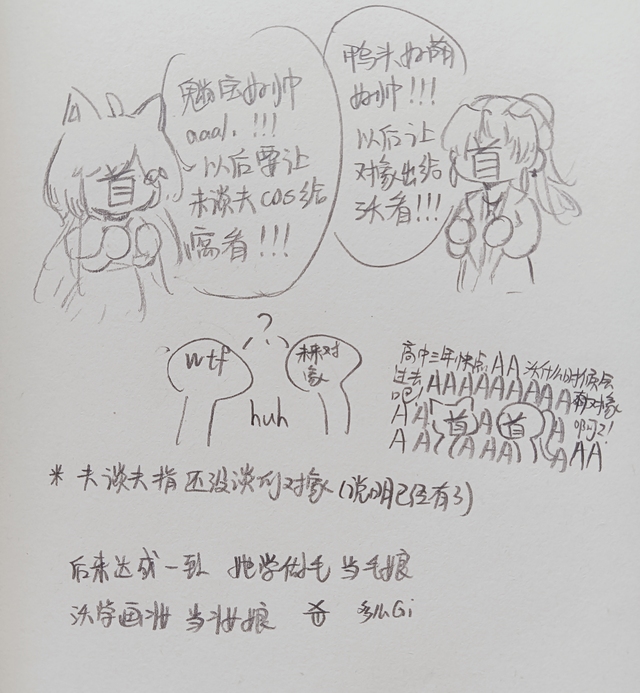 魈宝好帅
aaal. !!!
以后要让
未谈夫cos给
腐看!!!
鸭头好萌
好帅!!!
以后让
对象出给
沃看!!!
首
首
?
wtf
未来对
象
huh
高中三年快点
过去
吧!
沃什么时候会
有对象
啊?!
AA
AAAAAAAA
首
首
* 夫谈夫指还没谈的对象(说明已经有了)
后来达成一致 她学做毛 当毛娘
沃学画妆 当妆娘 多么Gi